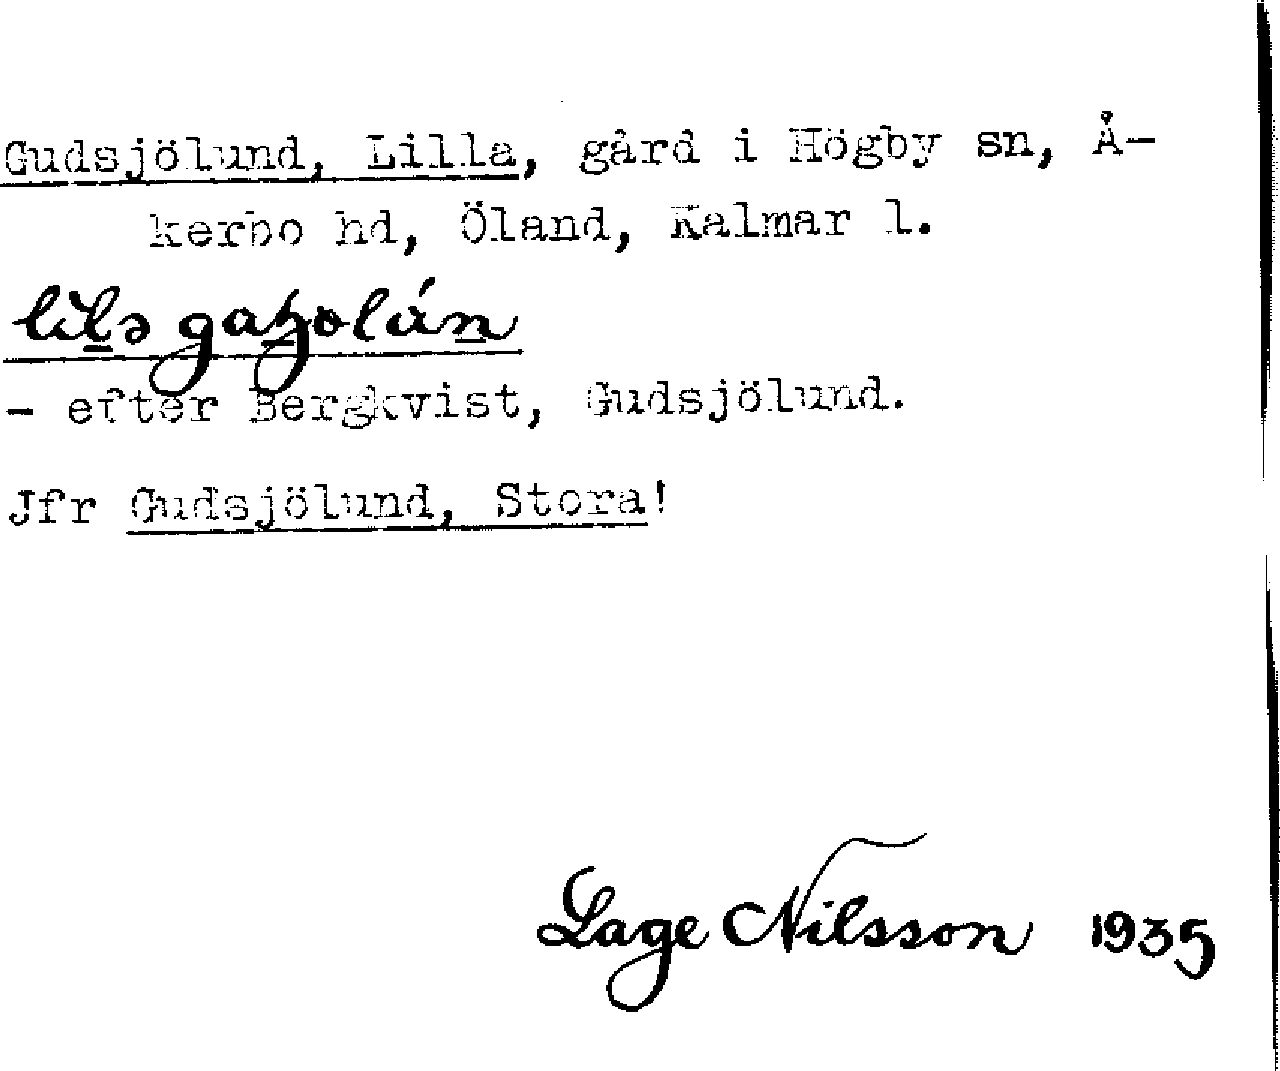 Gudsjölund, Lilla, gård i Högby sn, Å-
kerbo hd, Öland, Kalmar l.
- efter Bergkvist, Gudsjölund.
Jfr Gudsjölund, Stora!
Lage Nilsson 1935